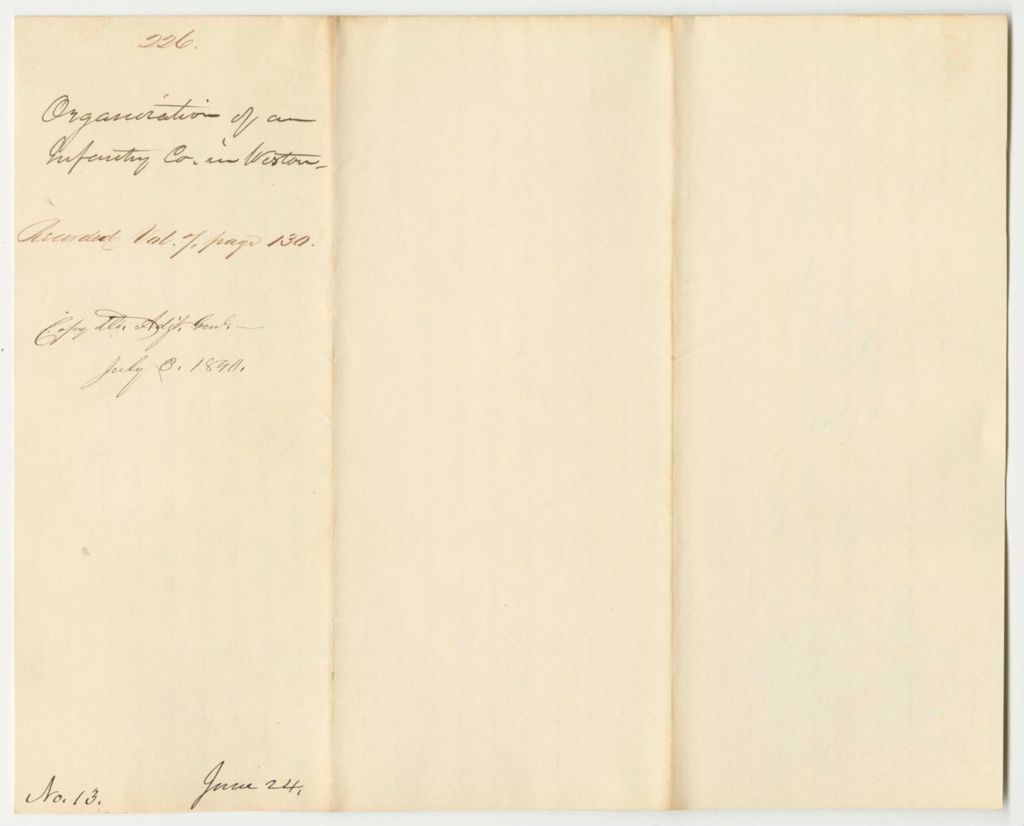 226.
Organization of an
Infantry Co. in Weston,
Recorded Vol. 7, page 130.
Copy Adjt. Genl.
July 3. 1840.
No. 13. June 24.